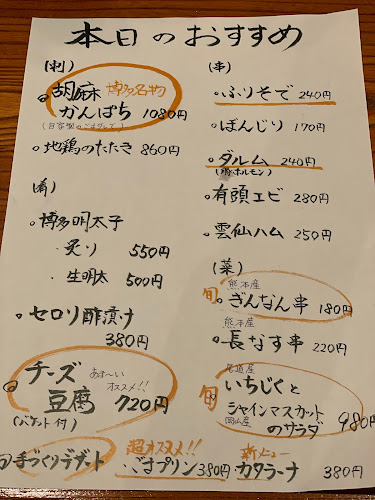 本日のおすすめ
(刺)
胡麻 博多名物
かんぱち 1080円
地鶏のたたき 860円
(肴)
博多明太子
・炙り 550円
・生明太 500円
セロリ酢漬け
380円
チーズ
オススメ!!
豆腐 720円
(バケット付)
手づくりデザート
(串)
ふりそで 240円
ぼんじり 170円
ダルム 240円
有頭エビ 280円
雲仙ハム 250円
(菜)
熊本産
旬 ぎんなん串 180円
熊本産
長なす串 220円
旬 いちじくと
シャインマスカット
岡山産
のサラダ 980円
超オススメ!!
ごまプリン 380円
新メニュー
カタラーナ 380円